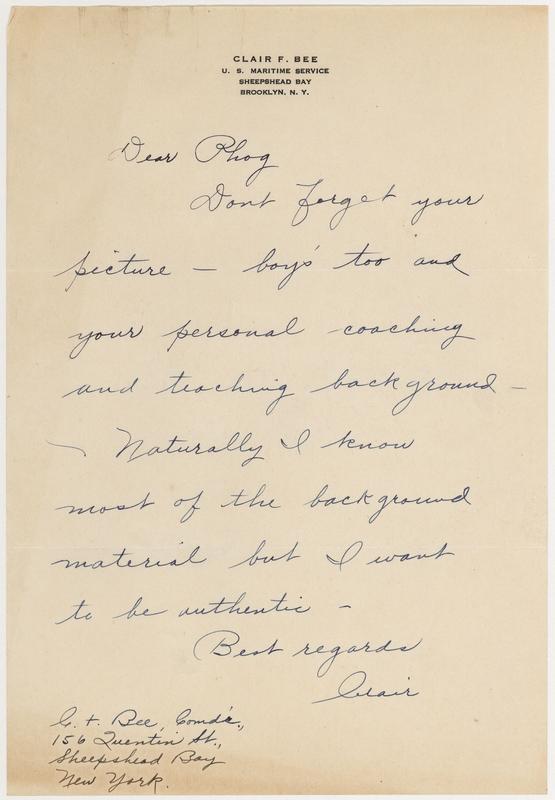 CLAIR F. BEE
U. S. MARITIME SERVICE
SHEEPSHEAD BAY
BROOKLYN, N. Y.
Dear Phog
Dont forget your
picture — boys' too and
your personal coaching
and teaching background —
Naturally I know
most of the background
material but I want
to be authentic —
Best regards
Clair
C. F. Bee, Comdr.,
156 Quentin St.,
Sheepshead Bay
New York.